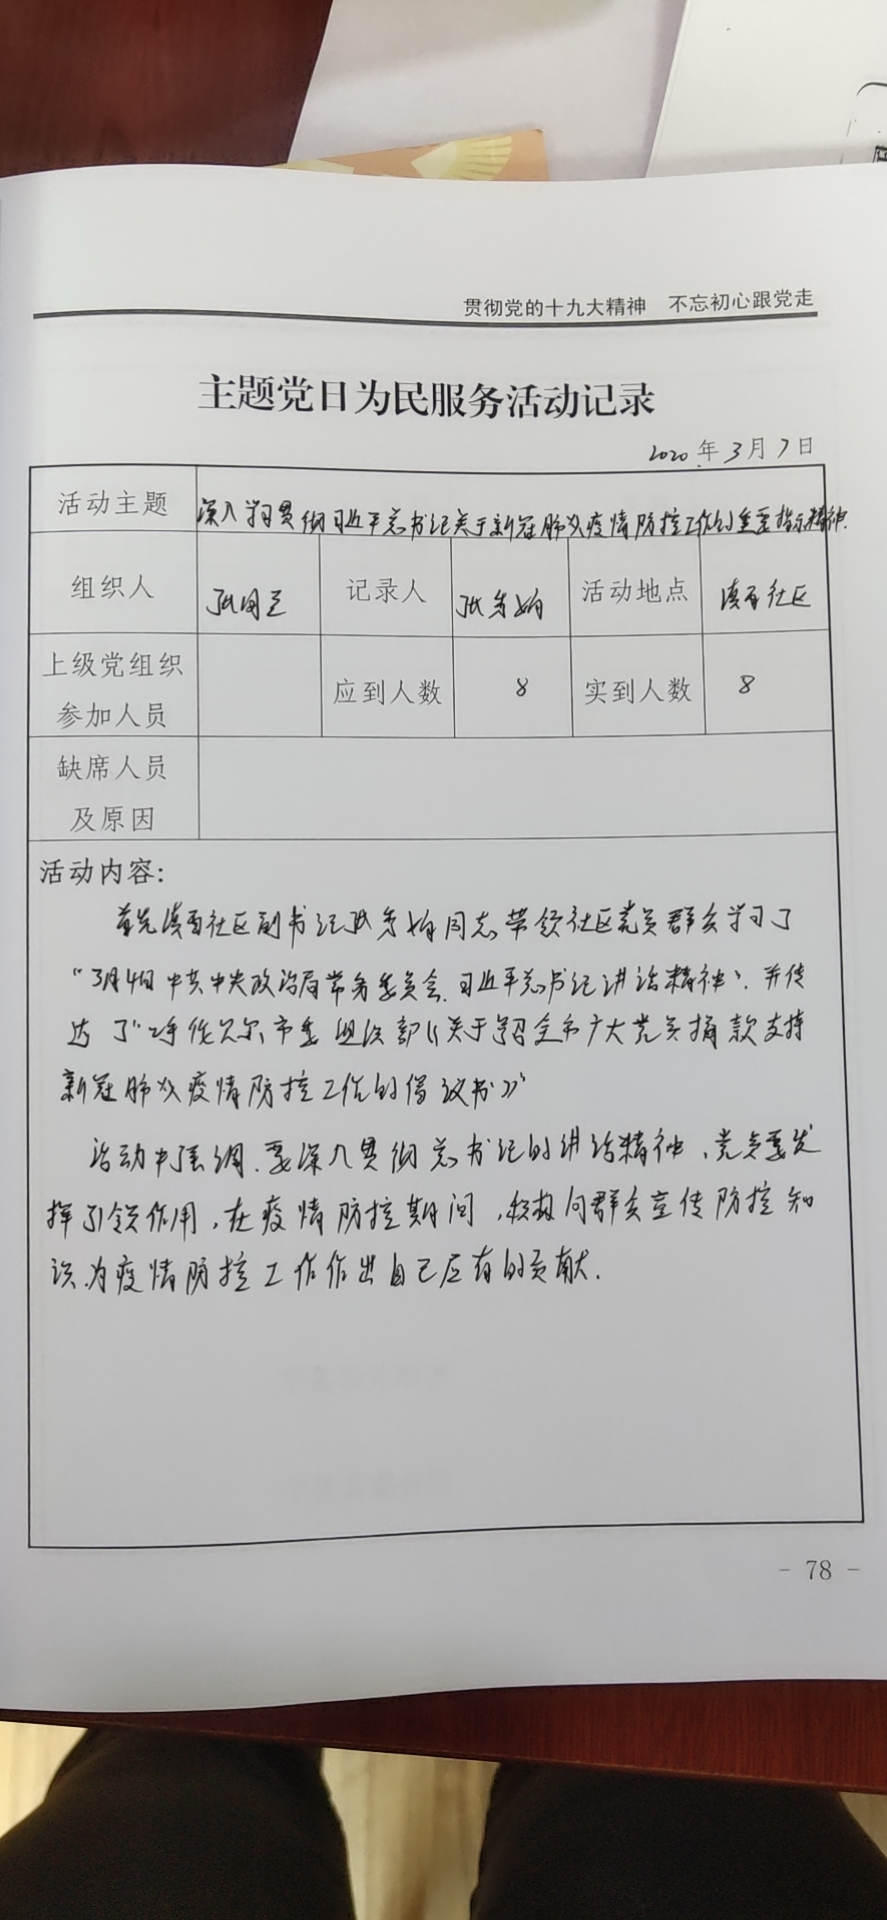 贯彻党的十九大精神 不忘初心跟党走
主题党日为民服务活动记录
2020年3月7日
活动主题 深入学习贯彻习近平总书记关于新冠肺炎疫情防控工作的重要指示精神.
组织人 张国 记录人 张秀娟 活动地点 社区
上级党组织
参加人员 应到人数 8 实到人数 8
缺席人员
及原因
活动内容:
首先 社区副书记张秀娟同志带领社区党员群众学习了
“3月4日中共中央政治局常务委员会.习近平总书记讲话精神”.并传
达了“呼伦贝尔市委组织部《关于号召全市广大党员捐款支持
新冠肺炎疫情防控工作的倡议书》”
活动中强调.要深入贯彻总书记的讲话精神、党员要发
挥引领作用,在疫情防控期间,积极向群众宣传防控知
识.为疫情防控工作作出自己应有的贡献.
- 78 -